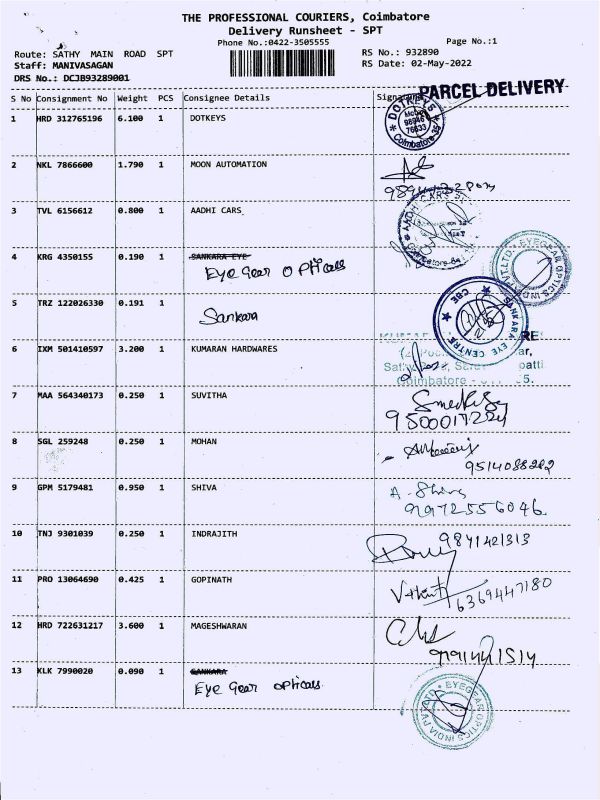 THE PROFESSIONAL COURIERS, Coimbatore
Delivery Runsheet - SPT
Phone No.:0422-3505555
Page No.:1
Route: SATHY MAIN ROAD SPT
RS No.: 932890
Staff: MANIVASAGAN
RS Date: 02-May-2022
DRS No.: DCJB93289001
PARCEL DELIVERY
S No Consignment No Weight PCS Consignee Details
1 HRD 312765196 6.100 1 DOTKEYS
DOTKEYS
98946
76633
Coimbatore
2 NKL 7866600 1.790 1 MOON AUTOMATION
3 TVL 6156612 0.800 1 AADHI CARS
4 KRG 4350155 0.190 1 SANKARA EYE
Eye Gear Opticals
EYEGEAR OPTICS INDIA PVT.LTD
5 TRZ 122026330 0.191 1
Sankara
SANKARA EYE CENTRE CBE
6 IXM 501410597 3.200 1 KUMARAN HARDWARES
Coimbatore -
7 MAA 564340173 0.250 1 SUVITHA
8 SGL 259248 0.250 1 MOHAN
9514088202
9 GPM 5179481 0.950 1 SHIVA
A - Shiva
91972556046
10 TNJ 9301039 0.250 1 INDRAJITH
9841421313
11 PRO 13064690 0.425 1 GOPINATH
6369447180
12 HRD 722631217 3.600 1 MAGESHWARAN
13 KLK 7990020 0.090 1 SANKARA
Eye Gear Opticals
EYEGEAR OPTICS INDIA PVT LTD